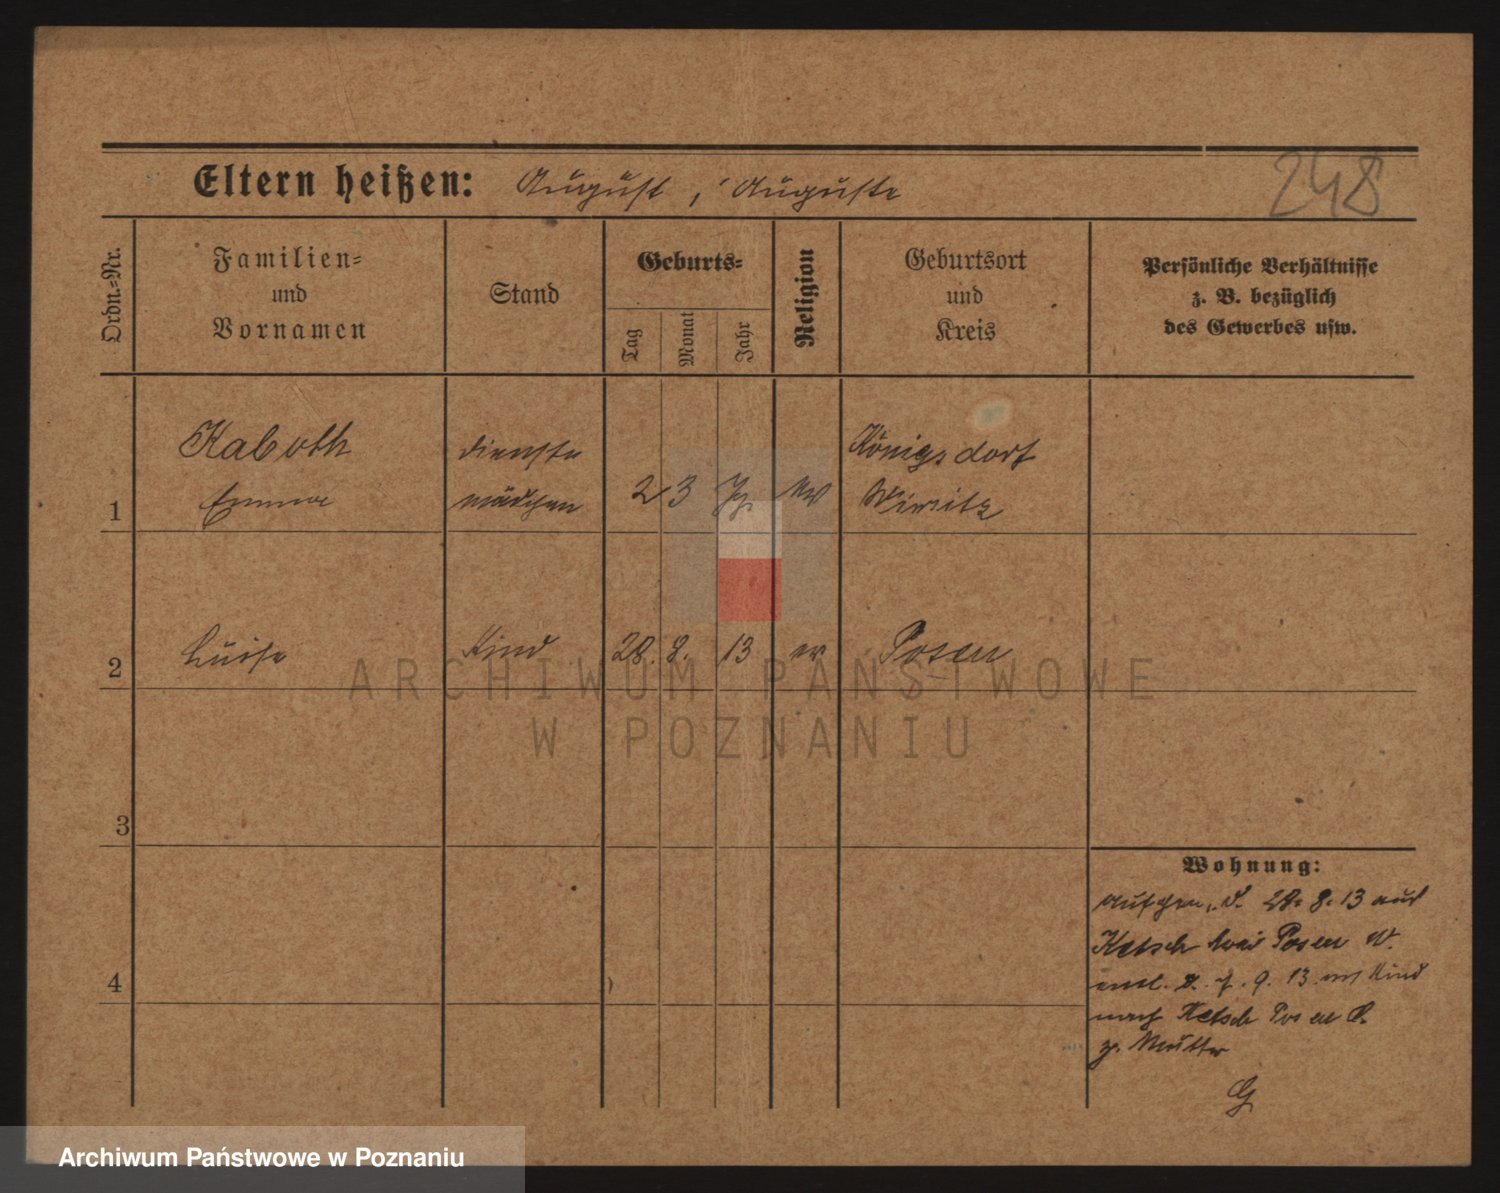 Eltern heißen: August, Auguste
248
Ordn.-Nr.
Familien-
und
Vornamen
Stand
Geburts-
Tag
Monat
Jahr
Religion
Geburtsort
und
Kreis
Persönliche Verhältnisse
z. B. bezüglich
des Gewerbes usw.
Kaboth
Emma
dienst
mädchen
2 3
Königsdorf
Wirsitz
1
Luise
Kind
28. 8. 13
ev
Posen
2
3
4
Wohnung:
aufgen. d. 28. 8. 13 aus
Ketsch Posen W.
entl. d. 7. 9. 13 mit Kind
nach Ketsch Posen O.
z. Mutter
G
ARCHIWUM PAŃSTWOWE
W POZNANIU
Archiwum Państwowe w Poznaniu